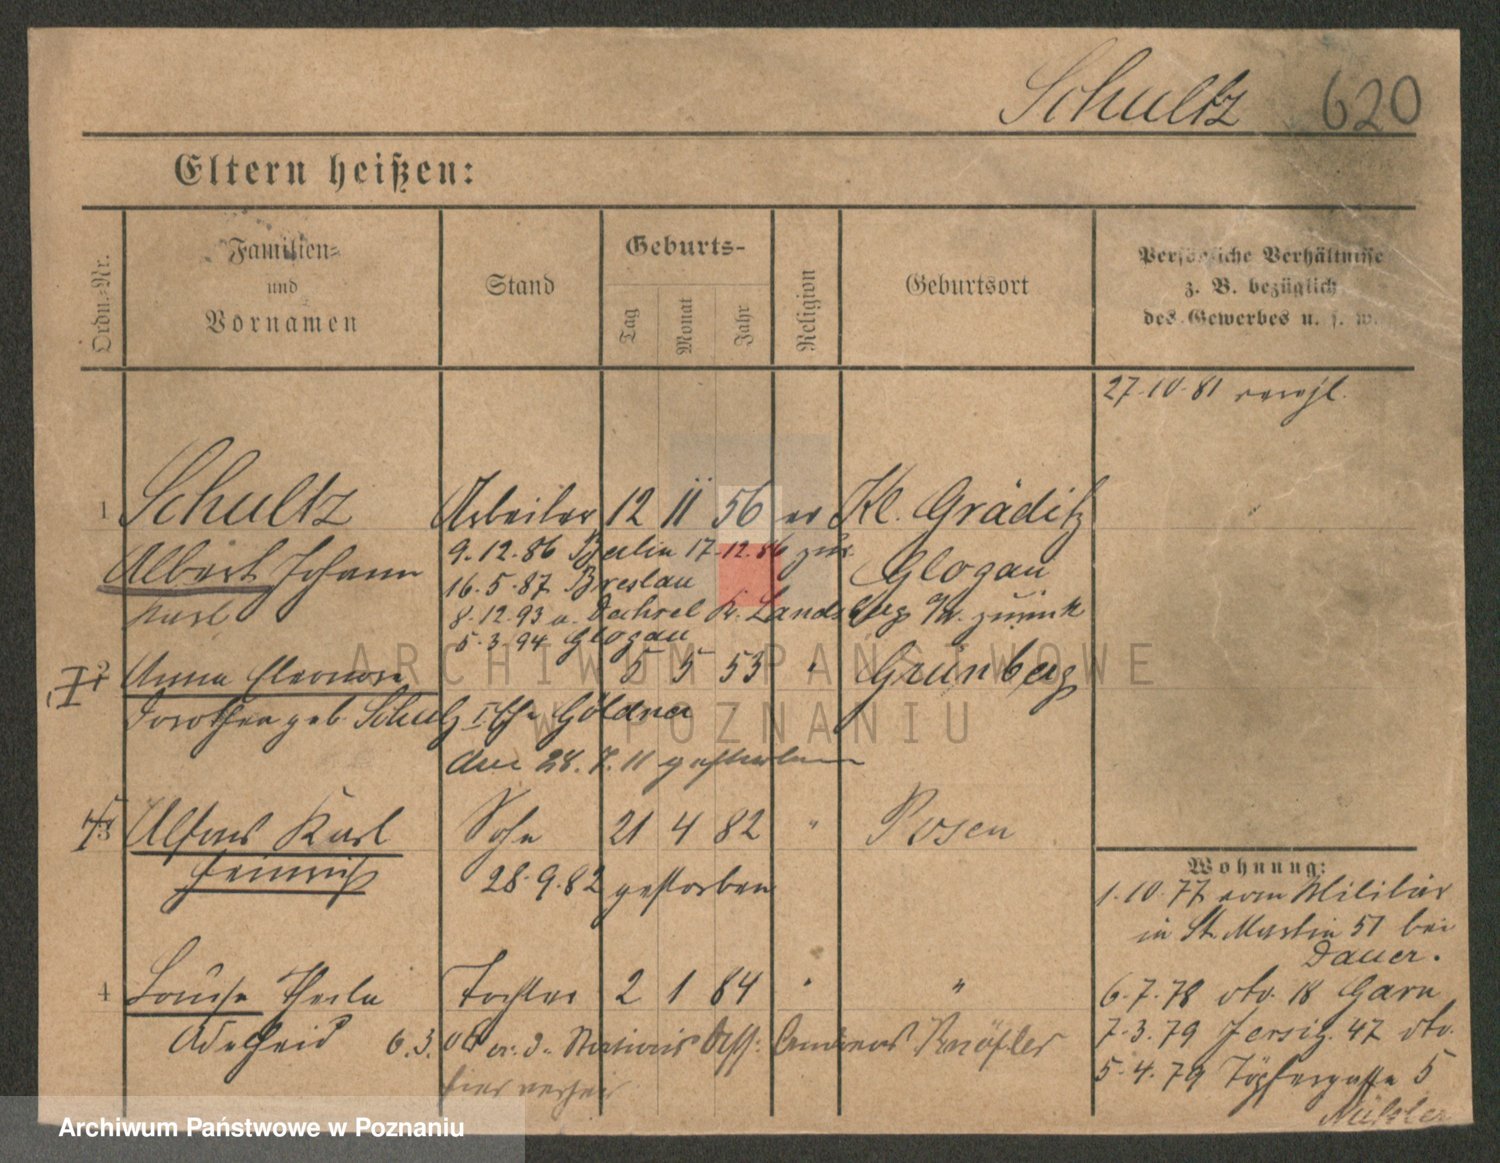 Schultz 620
Eltern heißen:
Ordn.-Nr.
Familien-
und
Vornamen
Stand
Geburts-
Tag
Monat
Jahr
Religion
Geburtsort
Persönliche Verhältnisse
z. B. bezüglich
des Gewerbes u. s. w.
27.10.81
1 Schultz Arbeiter 12 11 56 ev Kl. Gräditz
Albert Johann 9.12.86 Berlin 17.12.86 zur.
Karl 16.5.87 Breslau Glogau
8.12.93 a. Dechsel Kr. Landsberg a/W. zurück
5.3.94 Glogau
2 Anna Eleonore 5 5 53 " Grünberg
Dorothea geb. Schulz I Ehe Göldner
den 28.7.11 gestorben
3 Alfons Karl Sohn 21 4 82 " Posen
Heinrich 28.9.82 gestorben
4 Louise Thecla Tochter 2 1 84 " "
Adelheid 6.3.06 Stations Knöfler
hier
Wohnung:
1.10.77 vom Militär
in St. Martin 57 bei
Dauer.
6.7.78 dto. 18 Garn
7.3.79 Jersitz 47 dto.
5.4.79 Töpfergasse 5
ARCHIWUM PAŃSTWOWE
W POZNANIU
Archiwum Państwowe w Poznaniu